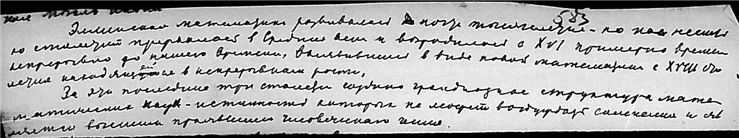 Эллинская математика развивалась в ходе тысячелетия - но на несколь
ко столетий прервалась в Средние века и возродилась с XVI примерно времени
непрерывно до нашего времени, выявившись в виде новой математики с XVII сто
летия находящейся в непрерывном росте.
За эти последние три столетия создана грандиозная структура мате
матических наук - истинность которых не может возбуждать сомнения и яв
ляется высшим проявлением человеческого гения.